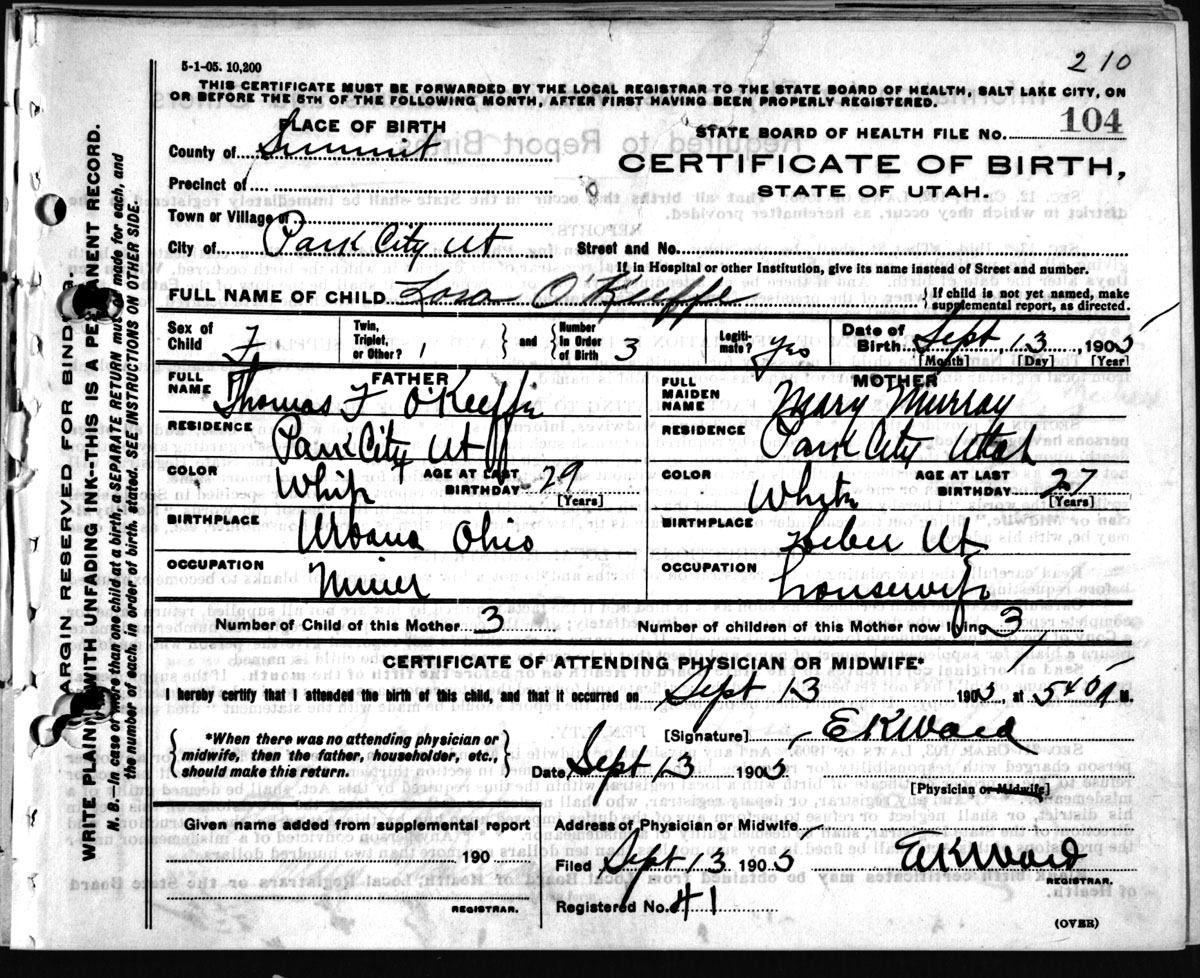 210
5-1-05. 10,200
THIS CERTIFICATE MUST BE FORWARDED BY THE LOCAL REGISTRAR TO THE STATE BOARD OF HEALTH, SALT LAKE CITY, ON
OR BEFORE THE 5TH OF THE FOLLOWING MONTH, AFTER FIRST HAVING BEEN PROPERLY REGISTERED.
PLACE OF BIRTH
STATE BOARD OF HEALTH FILE NO. 104
County of Summit
CERTIFICATE OF BIRTH,
Precinct of
STATE OF UTAH.
Town or Village of
City of Park City Ut Street and No.
If in Hospital or other Institution, give its name instead of Street and number.
FULL NAME OF CHILD Lora O'Keeffe } If child is not yet named, make supplemental report, as directed.
Sex of Child F Twin, Triplet, or Other? 1 } and { Number in Order of Birth 3 Legiti- mate? Yes Date of Birth Sept 13, 1905
[Month] [Day] [Year]
FATHER MOTHER
FULL NAME Thomas F O'Keeffe FULL MAIDEN NAME Mary Murray
RESIDENCE Park City Ut RESIDENCE Park City Utah
COLOR White AGE AT LAST BIRTHDAY 29 [Years] COLOR White AGE AT LAST BIRTHDAY 27 [Years]
BIRTHPLACE Urbana Ohio BIRTHPLACE Heber Ut
OCCUPATION Miner OCCUPATION Housewife
Number of Child of this Mother 3 Number of children of this Mother now living 3
CERTIFICATE OF ATTENDING PHYSICIAN OR MIDWIFE*
I hereby certify that I attended the birth of this child, and that it occurred on Sept 13 1905, at 540 A M.
{ *When there was no attending physician or midwife, then the father, householder, etc., should make this return. }
[Signature] E K Ward
Date Sept 13 1905
[Physician or Midwife]
Given name added from supplemental report
190
REGISTRAR.
Address of Physician or Midwife
Filed Sept 13 1905 E K Ward
REGISTRAR.
Registered No. 41
(OVER)
MARGIN RESERVED FOR BINDING
WRITE PLAINLY WITH UNFADING INK--THIS IS A PERMANENT RECORD.
N. B. In case of more than one child at a birth, a SEPARATE RETURN must be made for each, and
the number of each, in order of birth, stated. SEE INSTRUCTIONS ON OTHER SIDE.